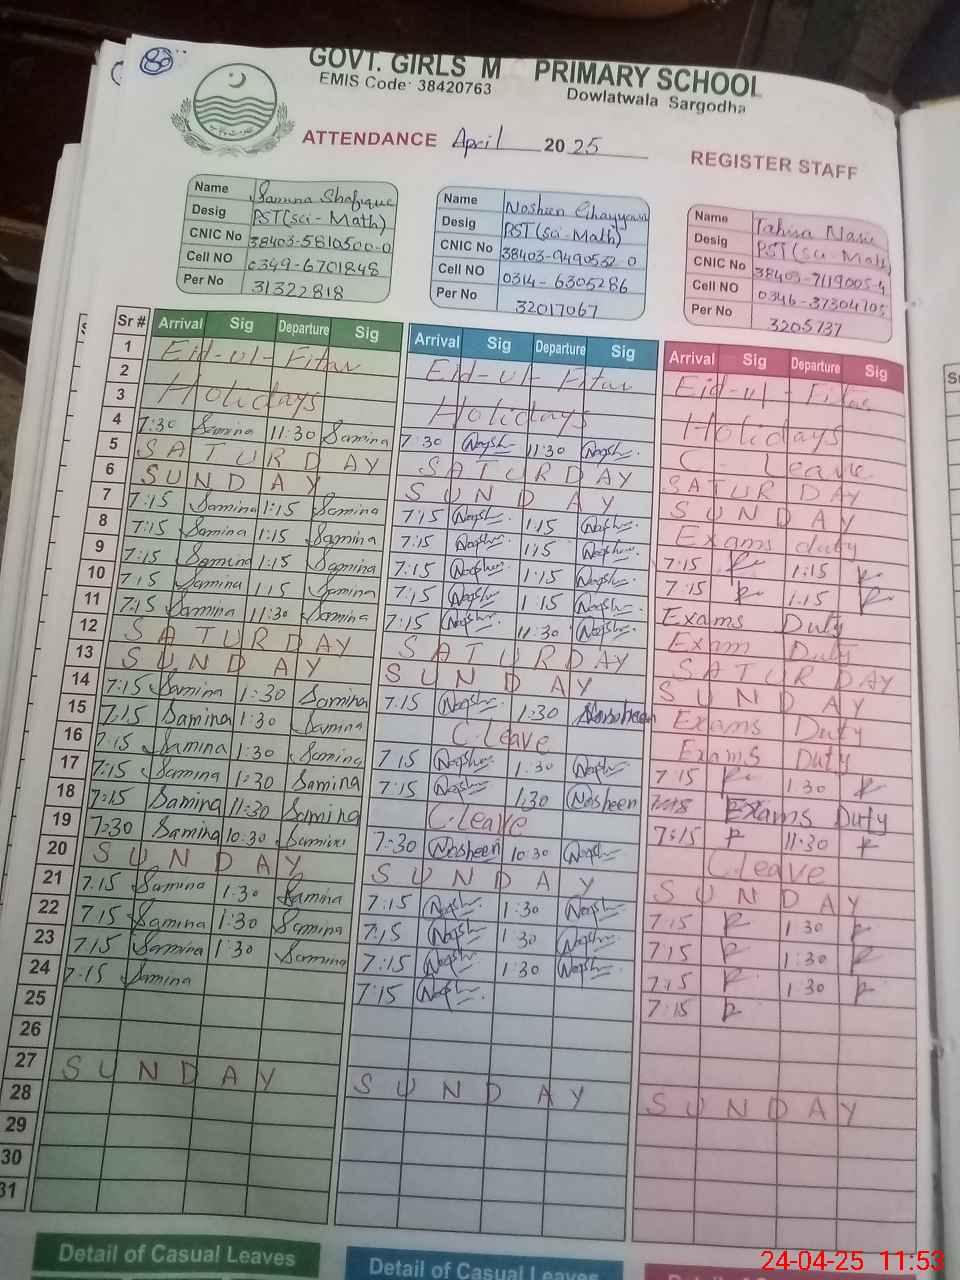 80
GOVT. GIRLS M PRIMARY SCHOOL
EMIS Code: 38420763
Dowlatwala Sargodha
ATTENDANCE April 2025
REGISTER STAFF
Name Samina Shafique
Desig PST(sci-Math)
CNIC No 38403-5810500-0
Cell NO 0349-6701848
Per No 31322818
Name Nosheen Ghayyour
Desig PST(sci-Math)
CNIC No 38403-9490532-0
Cell NO 0314-6305286
Per No 32017067
Name Tahira
Desig PST(sci-Math)
CNIC No
Cell NO
Per No 3205737
Sr # Arrival Sig Departure Sig Arrival Sig Departure Sig Arrival Sig Departure Sig
1 Eid-ul-Fitar Eid-ul-Fitar Eid-ul-Fitar
2
3 Holidays Holidays Holidays
4 7:30 Samina 11:30 Samina 7:30 11:30 C. Leave
5 SATURDAY SATURDAY SATURDAY
6 SUNDAY SUNDAY SUNDAY
7 7:15 Samina 1:15 Samina 7:15 1:15 Exams duty
8 7:15 Samina 1:15 Samina 7:15 1:15 7:15 1:15
9 7:15 Samina 1:15 Samina 7:15 1:15 7:15 1:15
10 7:15 Samina 1:15 Samina 7:15 1:15 Exams Duty
11 7:15 Samina 11:30 Samina 7:15 11:30 Exam Duty
12 SATURDAY SATURDAY SATURDAY
13 SUNDAY SUNDAY SUNDAY
14 7:15 Samina 1:30 Samina 7:15 1:30 Nosheen Exams Duty
15 7:15 Samina 1:30 Samina C.Leave Exams Duty
16 7:15 Samina 1:30 Samina 7:15 1:30 7:15 1:30
17 7:15 Samina 1:30 Samina 7:15 1:30 Nosheen Exams Duty
18 7:15 Samina 11:30 Samina C.Leave 7:15 11:30
19 7:30 Samina 10:30 Samina 7:30 Nosheen 10:30 C leave
20 SUNDAY SUNDAY SUNDAY
21 7:15 Samina 1:30 Samina 7:15 1:30 7:15 1:30
22 7:15 Samina 1:30 Samina 7:15 1:30 7:15 1:30
23 7:15 Samina 1:30 Samina 7:15 1:30 7:15 1:30
24 7:15 Samina 7:15 7:15
25
26
27 SUNDAY SUNDAY SUNDAY
28
29
30
31
Detail of Casual Leaves Detail of Casual Leaves
24-04-25 11:53